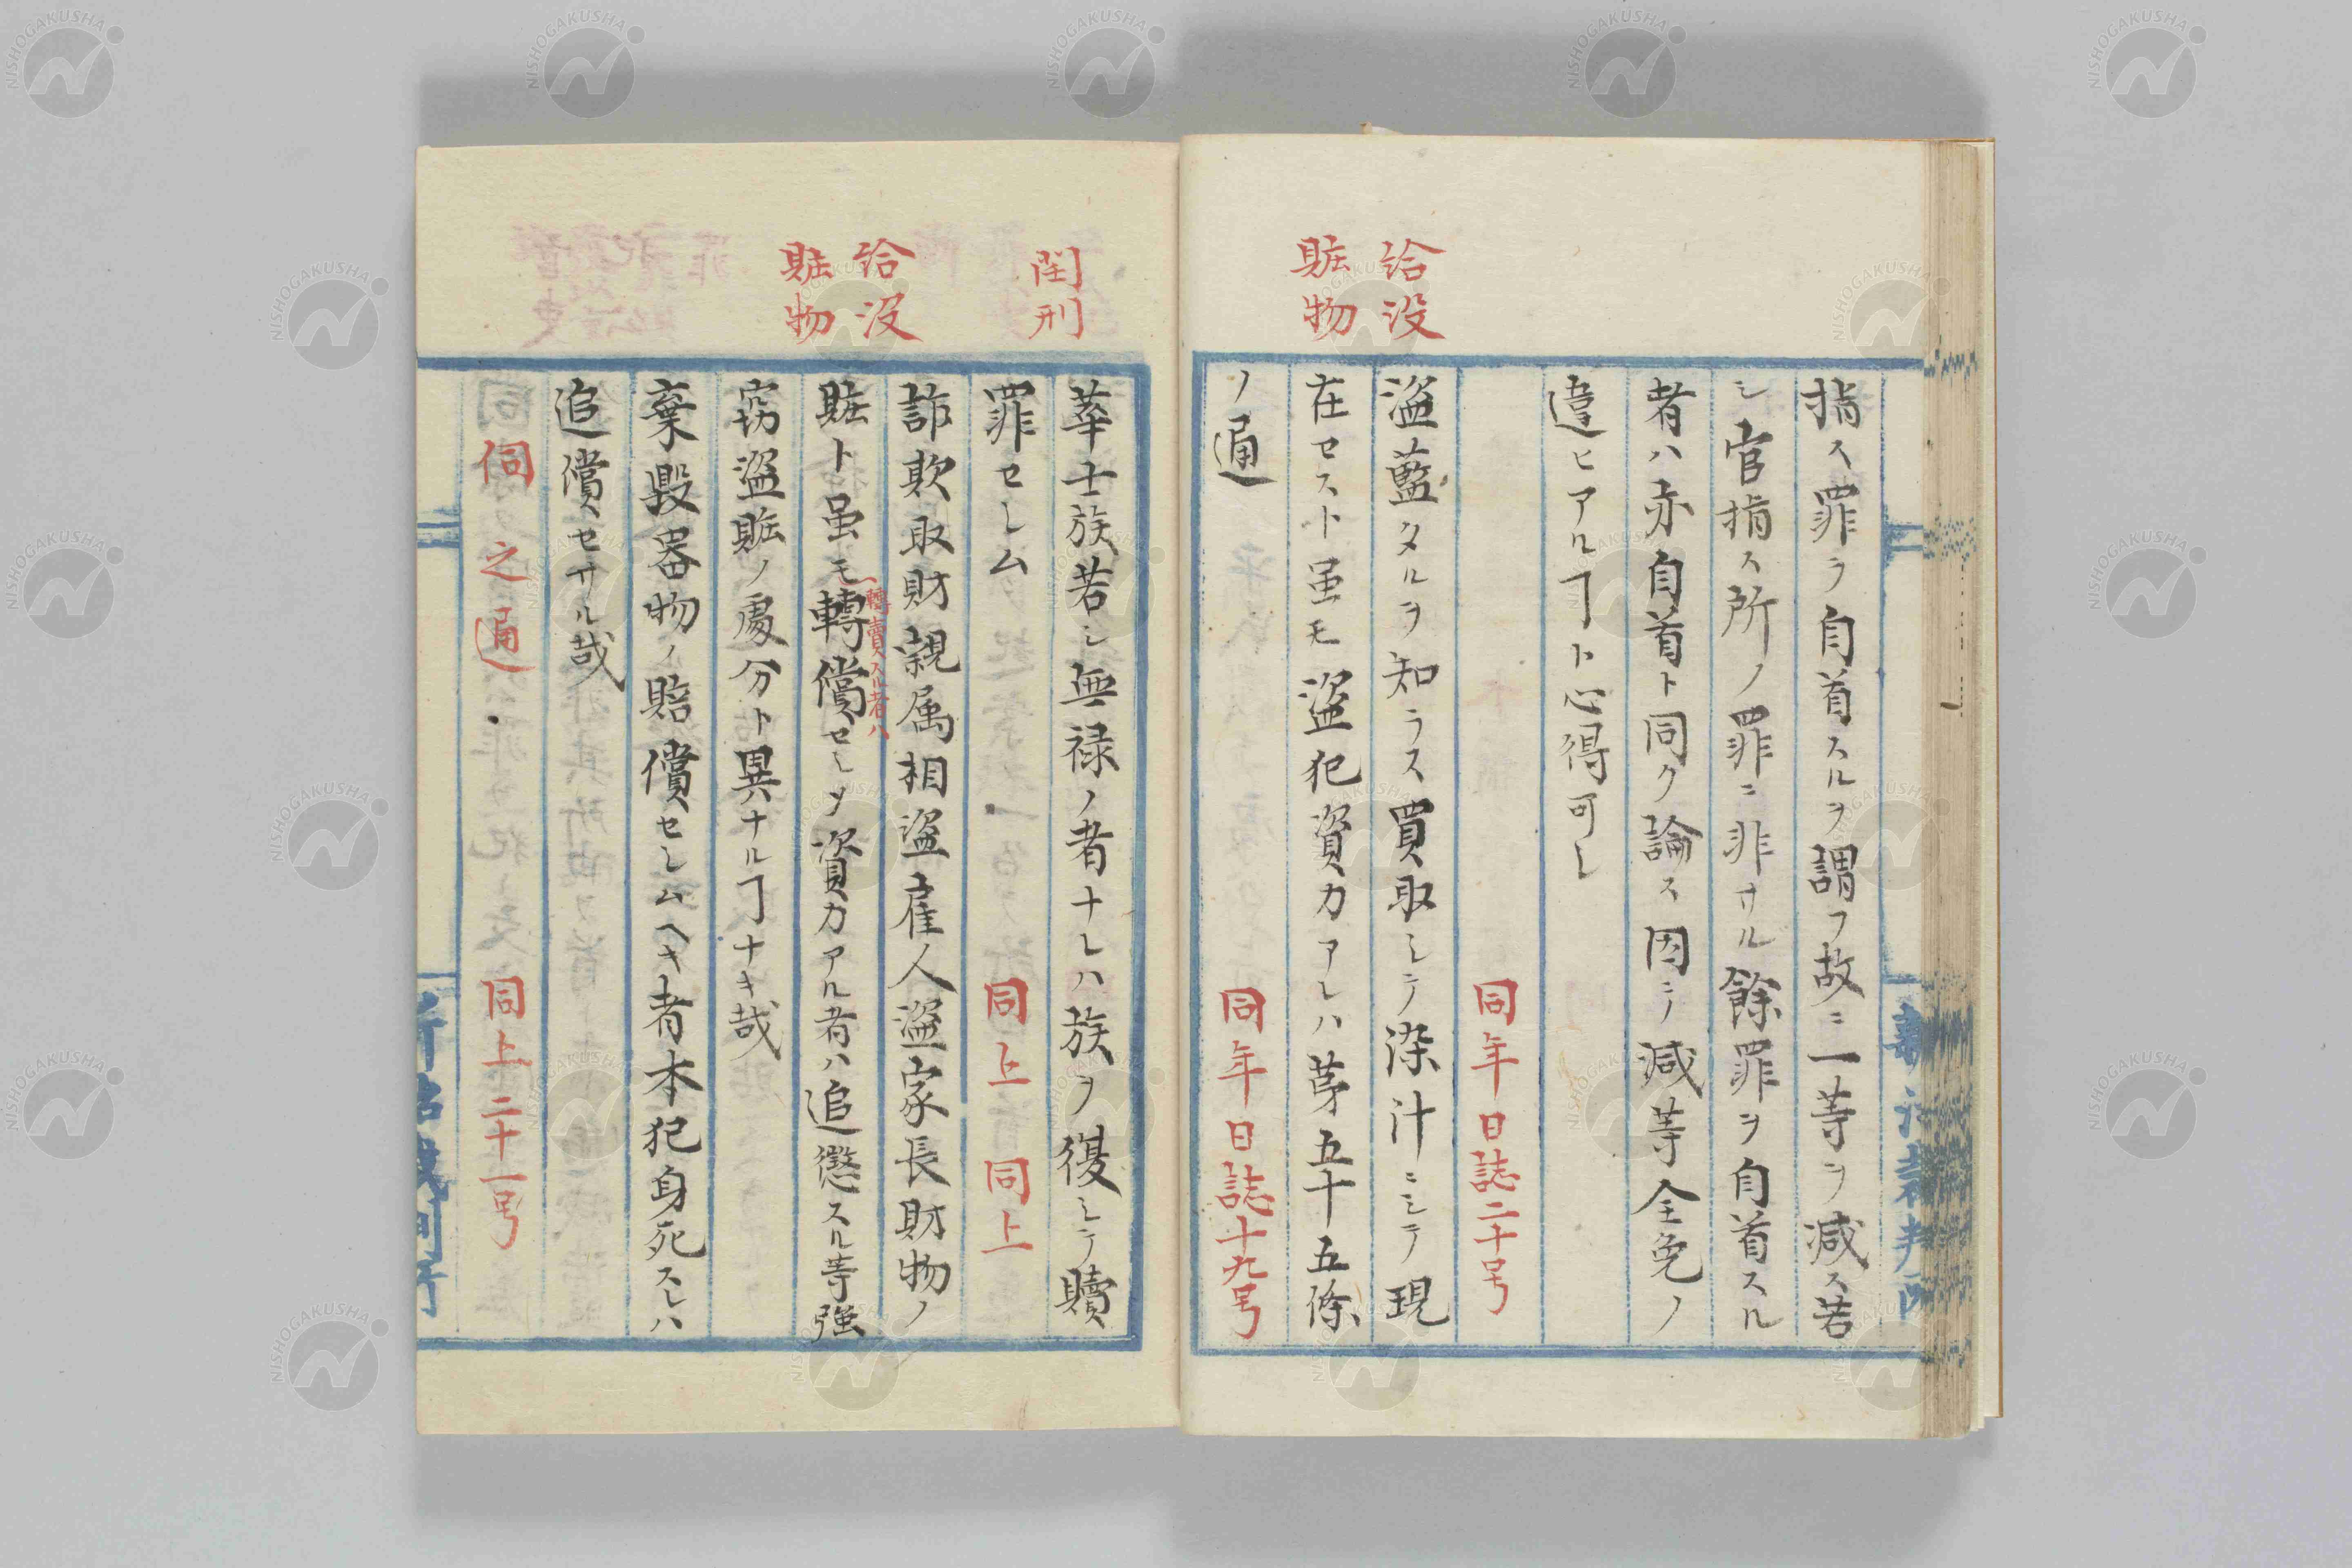 指ス罪ヲ自首スルヲ謂フ故ニ一等ヲ減ス若
シ官指ス所ノ罪ニ非サル餘罪ヲ自首スル
者ハ亦自首ト同ク論ス因テ減等全免ノ
違ヒアルヿト心得可シ
同年日誌二十号
給没
贓物
盗藍タルヲ知ラス買取シテ染汁ニシテ現
在セスト虽モ盗犯資力アレハ苐五十五條
ノ通
同年日誌十九号
閏刑
華士族若シ無禄ノ者ナレハ族ヲ復シテ贖
罪セシム
同上 同上
給没
贓物
詐欺取財親属相盗雇人盗家長財物ノ
贓ト虽モ轉償セシメ資力アル者ハ追懲スル等強
轉賣スル者ハ
窃盗贓ノ處分ト異ナルヿナキ哉
棄毀器物ノ賠償セシムヘキ者本犯身死スレハ
追償セサル哉
伺之通
同上二十一号
NISHOGAKUSHA